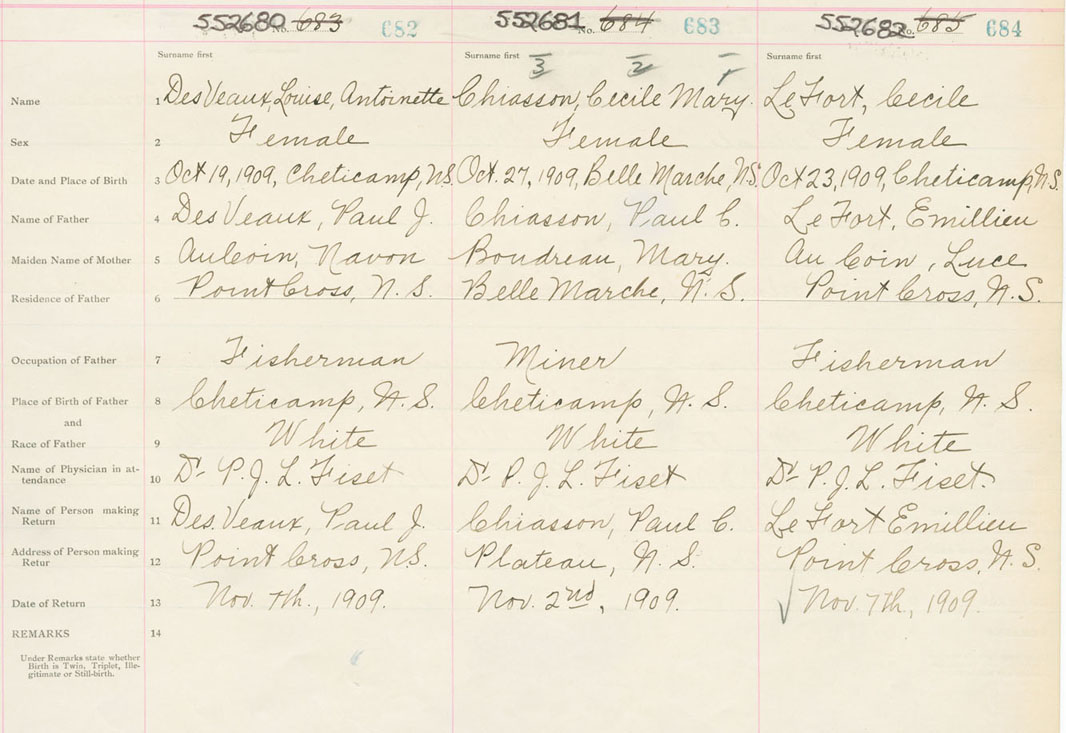 552680 No. 683 682 552681 No. 684 683 552682 No. 685 684
Surname first Surname first Surname first
3 2 1
Name 1 DesVeaux, Louise, Antoinette Chiasson, Cecile Mary. LeFort, Cecile
Sex 2 Female Female Female
Date and Place of Birth 3 Oct 19, 1909, Cheticamp, N.S. Oct. 27, 1909, Belle Marche, N.S. Oct 23, 1909, Cheticamp, N.S.
Name of Father 4 DesVeaux, Paul J. Chiasson, Paul C. LeFort, Emillieu
Maiden Name of Mother 5 AuCoin, Navon Boudreau, Mary. AuCoin, Luce
Residence of Father 6 Point Cross, N.S. Belle Marche, N.S. Point Cross, N.S.
Occupation of Father 7 Fisherman Miner Fisherman
Place of Birth of Father 8 Cheticamp, N.S. Cheticamp, N.S. Cheticamp, N.S.
and
Race of Father 9 White White White
Name of Physician in at-
tendance 10 Dr P.J.L. Fiset Dr P.J.L. Fiset Dr P.J.L. Fiset.
Name of Person making
Return 11 Des.Veaux, Paul J. Chiasson, Paul C. LeFort Emillieu
Address of Person making
Retur 12 Point Cross, N.S. Plateau, N.S. Point Cross, N.S.
Date of Return 13 Nov. 7th., 1909. Nov. 2nd, 1909. Nov. 7th, 1909.
REMARKS 14
Under Remarks state whether
Birth is Twin, Triplet, Ille-
gitimate or Still-birth.